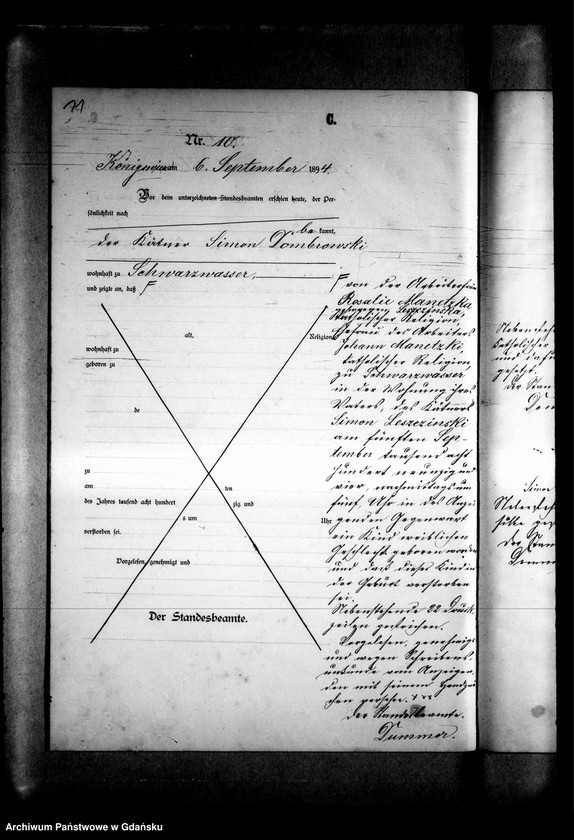 71
C.
Nr. 10.
Königswiese am 6. September 1894.
Vor dem unterzeichneten Standesbeamten erschien heute, der Per-
sönlichkeit nach
be kannt,
der Kätner Simon Dombrowski
wohnhaft zu Schwarzwasser,
und zeigte an, daß
alt, Religion
wohnhaft zu
geboren zu
de
zu
am ten
des Jahres tausend acht hundert zig und
s um Uhr
verstorben sei.
Vorgelesen, genehmigt und
Der Standesbeamte.
von der Arbeiterfrau
Rosalie Manetzka
geborenen Leszezinska,
katholischer Religion,
Ehefrau des Arbeiters
Johann Manetzki,
katholischer Religion
zu Schwarzwasser
in der Wohnung ihres
Vaters, des Kätners
Simon Leszezinski
am fünften Sep-
tember tausend acht
hundert neunzig und
vier, nachmittags um
fünf Uhr in des Anzei
genden Gegenwart
ein Kind weiblichen
Geschlecht geboren worden
und daß dieses Kind in
der Geburt verstorben
sei.
Nebenstehende 22 Druck
zeilen gestrichen.
Vorgelesen, genehmigt
und wegen Schreibens
unkunde vom Anzeigen
den mit seinem Handzei
chen versehen. xxx
Der Standesbeamte.
Dummer.
Nebensteh
katholischer
und dafü
gesetzt.
Der Stan
Dum
Simon
Nebensteh
Der Stan
Dumm
Archiwum Państwowe w Gdańsku